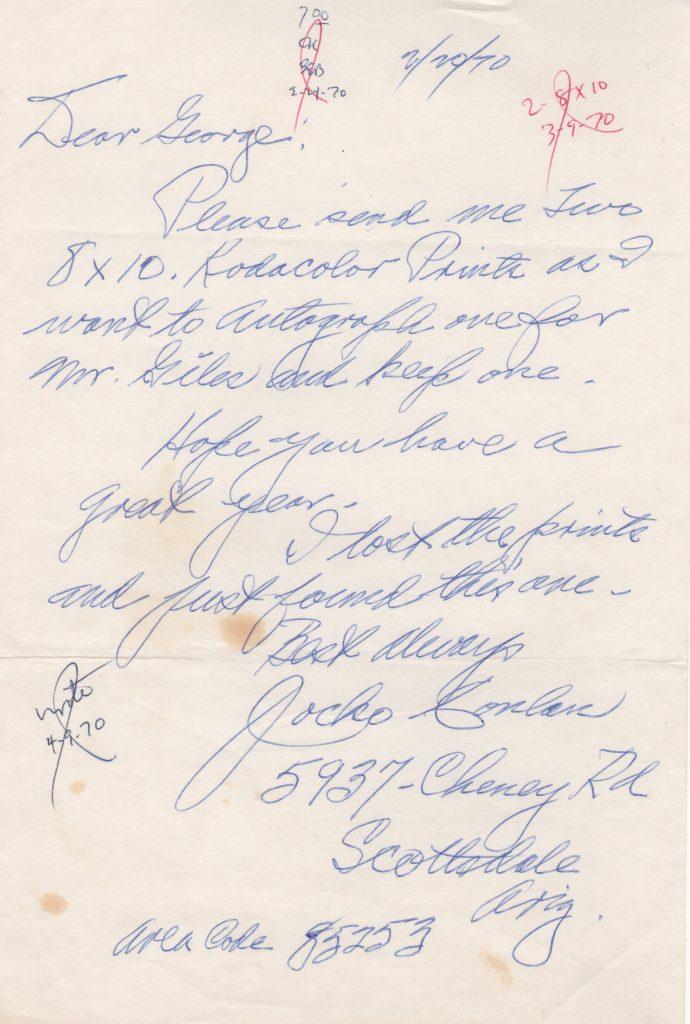 7.00
OK
2-24-70
2/20/70
2-8x10
3-9-70
Dear George:
Please send me two
8x10. Kodacolor Prints as I
want to Autograph one for
Mr. Giles and keep one.
Hope you have a
great year.
I lost the prints
and just found this one -
Best Always
Jocko Conlan
5937 - Cheney Rd
Scottsdale
Ariz.
Area Code 85253
wrote
4-9-70